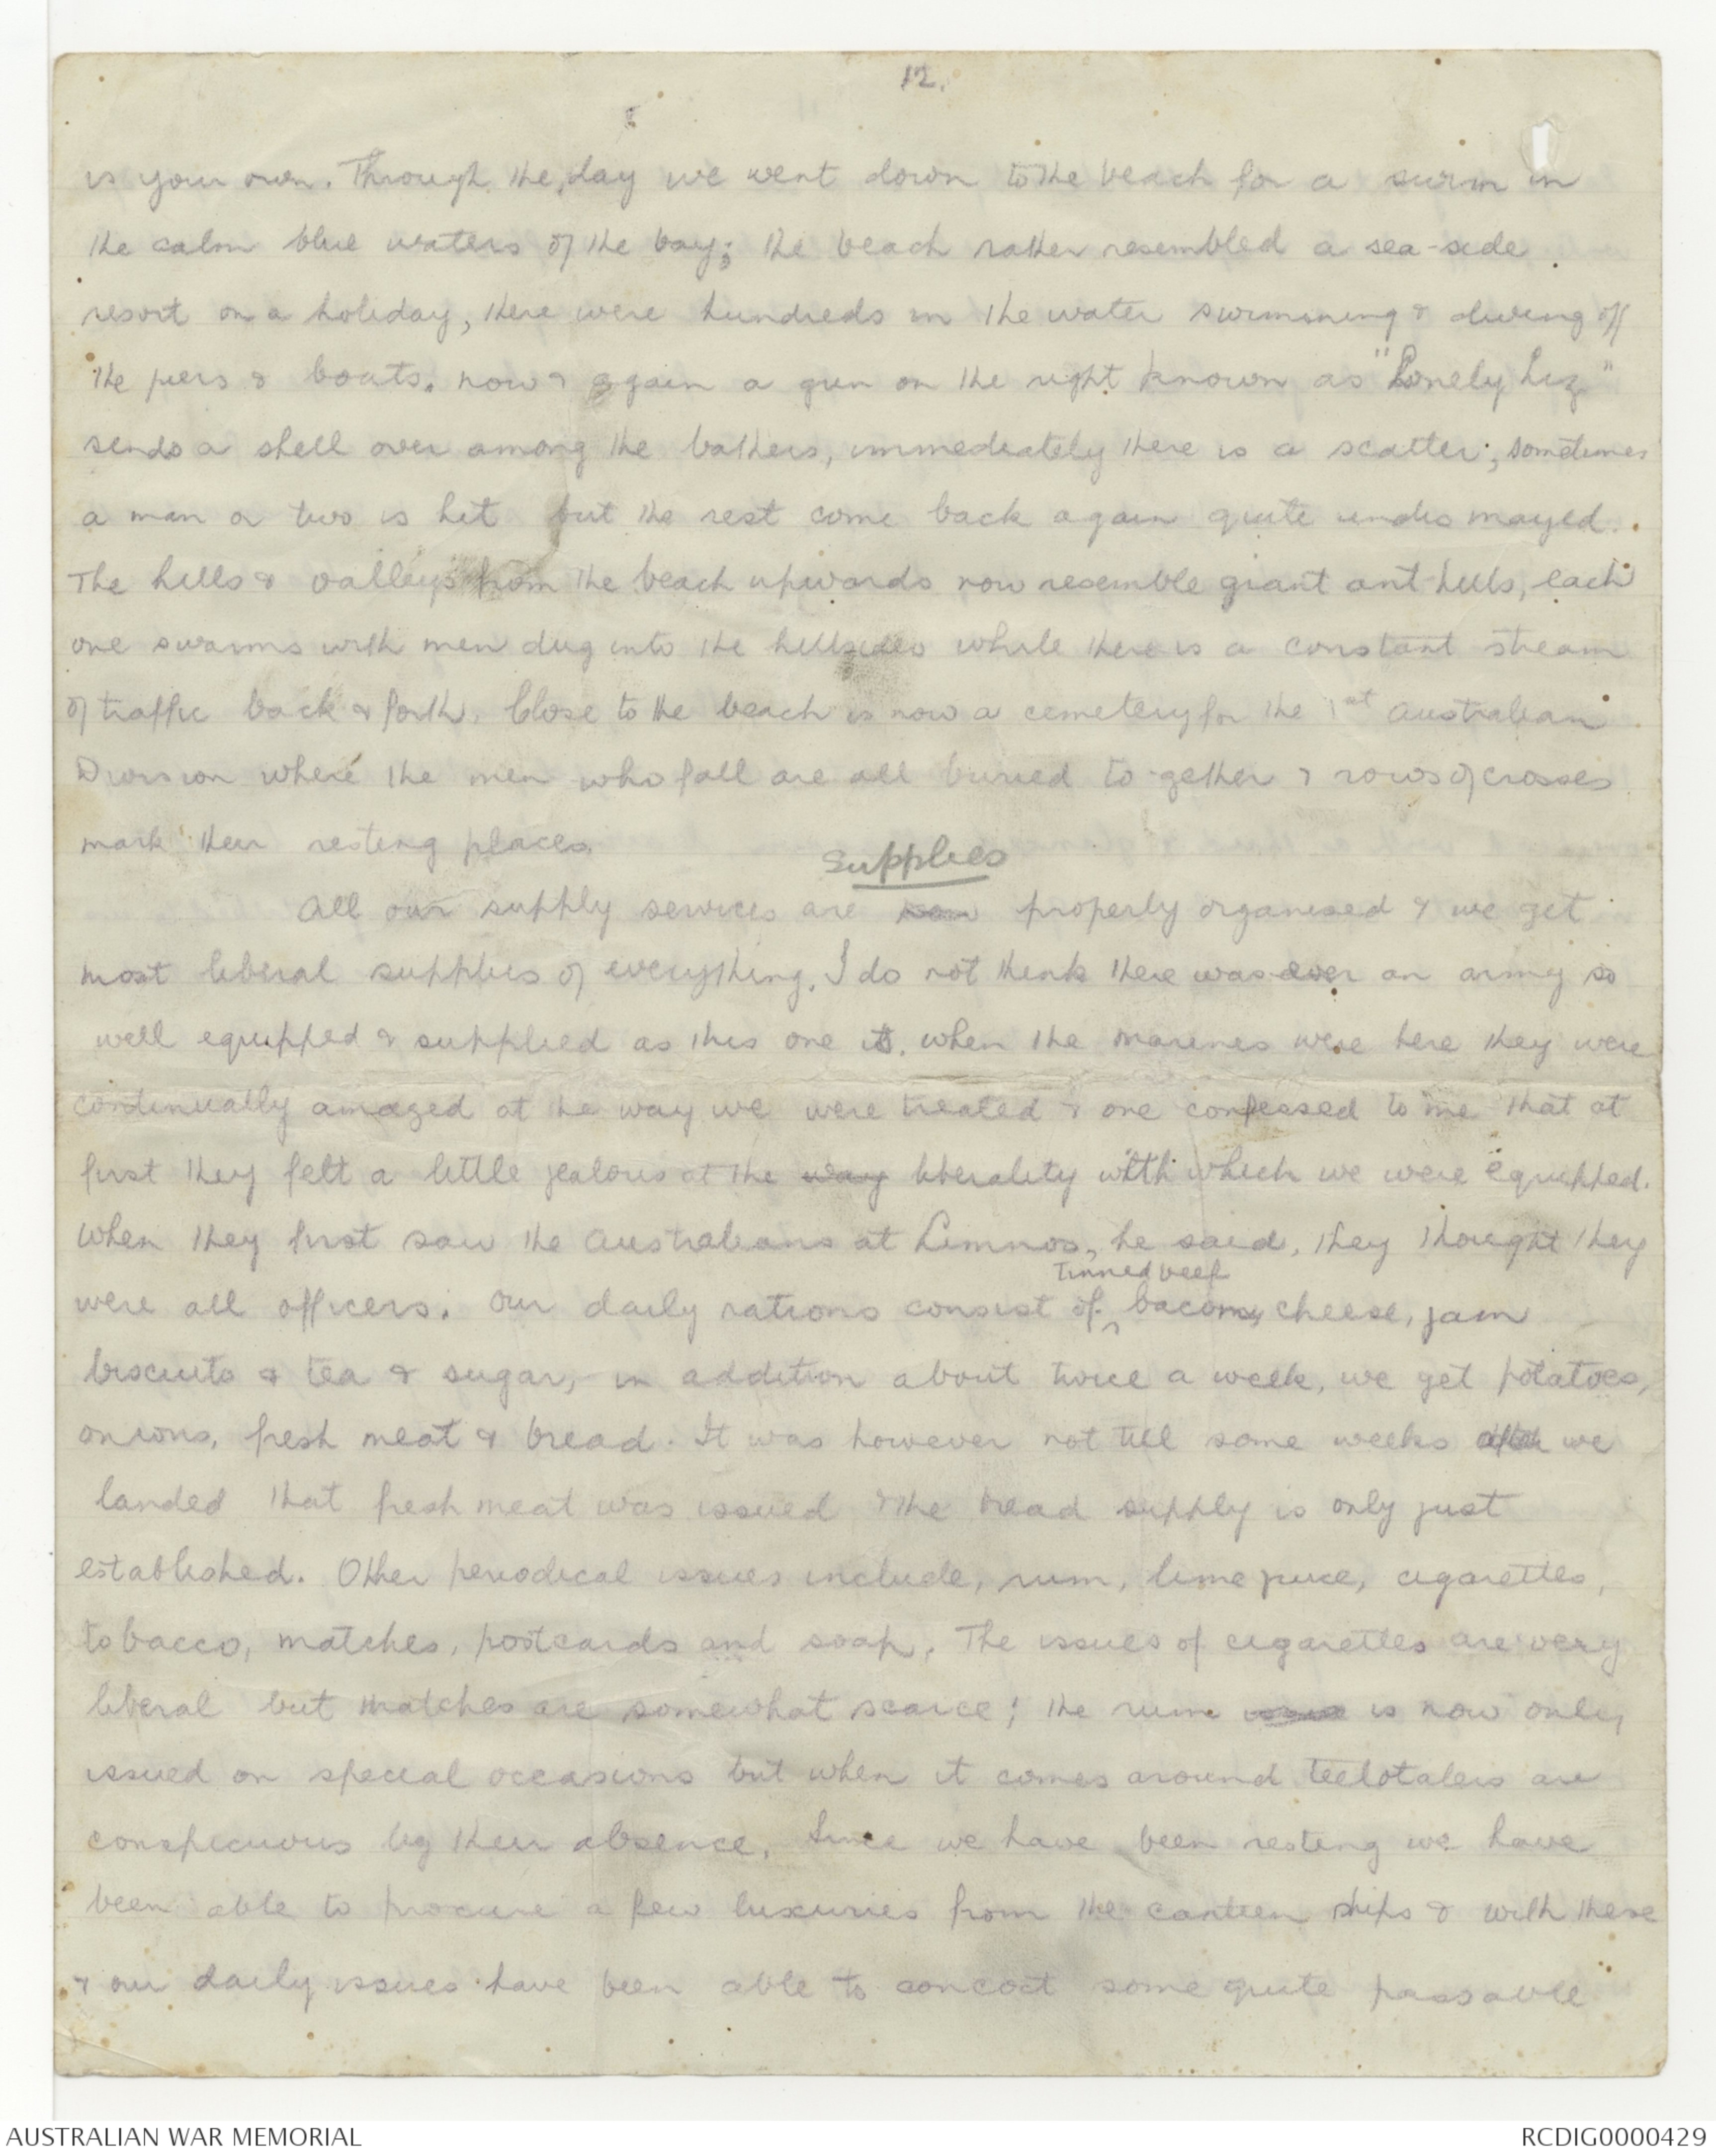 12.
is your own. Through the day we went down to the beach for a swim in
the calm blue waters of the bay; the beach rather resembled a sea-side
resort on a holiday, there were hundreds in the water swimming & diving off
the piers & boats. now & again a gun on the right known as "Lonely Liz"
sends a shell over among the bathers, immediately there is a scatter; sometimes
a man or two is hit but the rest come back again quite undismayed.
The hills & valleys from the beach upwards now resemble giant ant hills, each
one swarms with men dug into the hillsides while there is a constant stream
of traffic back & forth. Close to the beach is now a cemetery for the 1st Australian
Division where the men who fall are all buried to-gether & rows of crosses
mark their resting places.
Supplies
All our supply services are now properly organised & we get
most liberal supplies of everything. I do not think there was ever an army so
well equipped & supplied as this one is. when the marines were here they were
continually amazed at he way we were treated & one confessed to me that at
first they felt a little jealous at the way liberality with which we were equipped.
When they first saw the Australians at Limnos, he said, they thought they
were all officers. Our daily rations consist of Tinned beef bacon, cheese, jam
biscuits & tea & sugar, in addition about twice a week, we get potatoes,
onions, fresh meat & bread. It was however not till some weeks after we
landed that fresh meat was issued & the bread supply is only just
established. Other periodical issues include, rum, lime juice, cigarettes,
tobacco, matches, postcards and soap. The issues of cigarettes are very
liberal but matches are somewhat scarce; the rum issue is now only
issued on special occasions but when it comes around teetotalers are
conspicuous by their absence. Since we have been resting we have
been able to procure a few luxuries from the canteen ships & with these
& our daily issues have been able to concoct some quite passable
AUSTRALIAN WAR MEMORIAL
RCDIG0000429